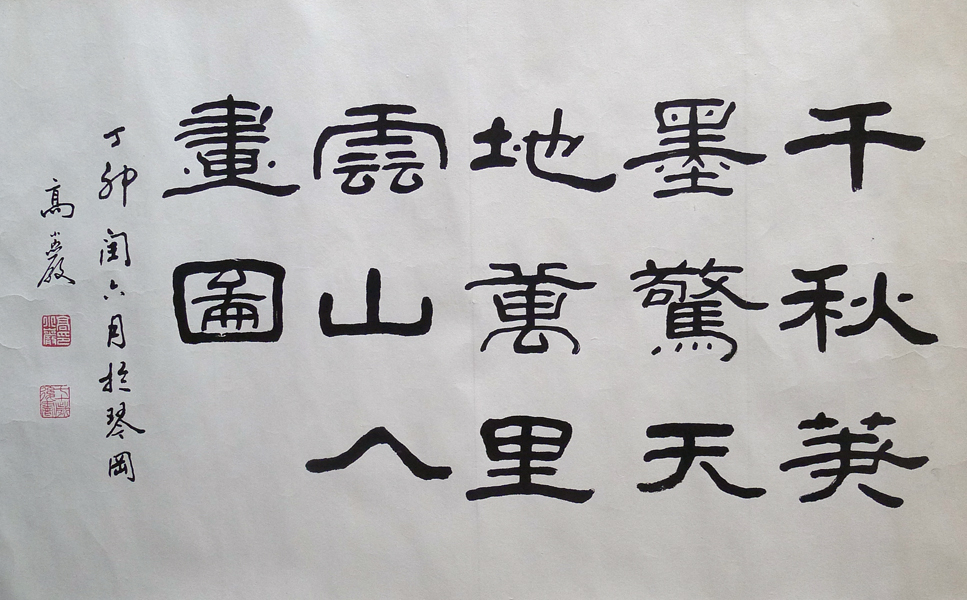 千秋英
墨驚天
地萬里
雲山入
畫圖
丁卯閏六月於琴岡
高巖